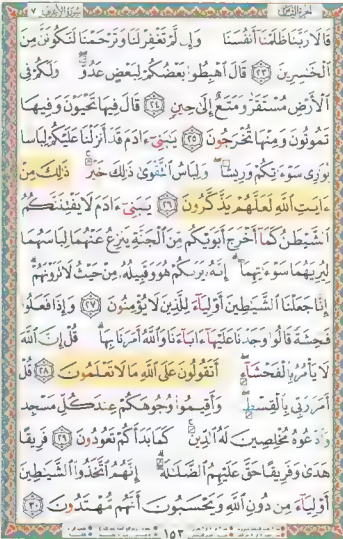 الجزء الثامن سورة الأعراف ٧
قَالَا رَبَّنَا ظَلَمْنَا أَنفُسَنَا وَإِن لَّمْ تَغْفِرْ لَنَا وَتَرْحَمْنَا لَنَكُونَنَّ مِنَ
ٱلْخَٰسِرِينَ ٢٣ قَالَ ٱهْبِطُوا۟ بَعْضُكُمْ لِبَعْضٍ عَدُوٌّ ۖ وَلَكُمْ فِى
ٱلْأَرْضِ مُسْتَقَرٌّ وَمَتَٰعٌ إِلَىٰ حِينٍ ٢٤ قَالَ فِيهَا تَحْيَوْنَ وَفِيهَا
تَمُوتُونَ وَمِنْهَا تُخْرَجُونَ ٢٥ يَٰبَنِىٓ ءَادَمَ قَدْ أَنزَلْنَا عَلَيْكُمْ لِبَاسًا
يُوَٰرِى سَوْءَٰتِكُمْ وَرِيشًا ۖ وَلِبَاسُ ٱلتَّقْوَىٰ ذَٰلِكَ خَيْرٌ ۚ ذَٰلِكَ مِنْ
ءَايَٰتِ ٱللَّهِ لَعَلَّهُمْ يَذَّكَّرُونَ ٢٦ يَٰبَنِىٓ ءَادَمَ لَا يَفْتِنَنَّكُمُ
ٱلشَّيْطَٰنُ كَمَآ أَخْرَجَ أَبَوَيْكُم مِّنَ ٱلْجَنَّةِ يَنزِعُ عَنْهُمَا لِبَاسَهُمَا
لِيُرِيَهُمَا سَوْءَٰتِهِمَآ ۗ إِنَّهُۥ يَرَىٰكُمْ هُوَ وَقَبِيلُهُۥ مِنْ حَيْثُ لَا تَرَوْنَهُمْ ۗ
إِنَّا جَعَلْنَا ٱلشَّيَٰطِينَ أَوْلِيَآءَ لِلَّذِينَ لَا يُؤْمِنُونَ ٢٧ وَإِذَا فَعَلُوا۟
فَٰحِشَةً قَالُوا۟ وَجَدْنَا عَلَيْهَآ ءَابَآءَنَا وَٱللَّهُ أَمَرَنَا بِهَا ۗ قُلْ إِنَّ ٱللَّهَ
لَا يَأْمُرُ بِٱلْفَحْشَآءِ ۖ أَتَقُولُونَ عَلَى ٱللَّهِ مَا لَا تَعْلَمُونَ ٢٨ قُلْ
أَمَرَ رَبِّى بِٱلْقِسْطِ ۖ وَأَقِيمُوا۟ وُجُوهَكُمْ عِندَ كُلِّ مَسْجِدٍ
وَٱدْعُوهُ مُخْلِصِينَ لَهُ ٱلدِّينَ ۚ كَمَا بَدَأَكُمْ تَعُودُونَ ٢٩ فَرِيقًا
هَدَىٰ وَفَرِيقًا حَقَّ عَلَيْهِمُ ٱلضَّلَٰلَةُ ۗ إِنَّهُمُ ٱتَّخَذُوا۟ ٱلشَّيَٰطِينَ
أَوْلِيَآءَ مِن دُونِ ٱللَّهِ وَيَحْسَبُونَ أَنَّهُم مُّهْتَدُونَ ٣٠
١٥٣